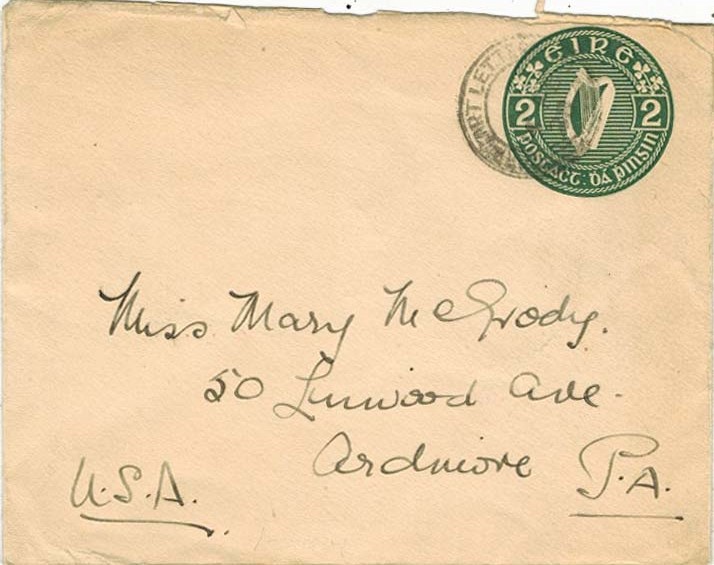 ÉIRE
2 2
POSTAGE: DÁ PINSIN
LETTE
Miss Mary McGrody.
50 Linwood Ave.
Ardmore P.A.
U.S.A.